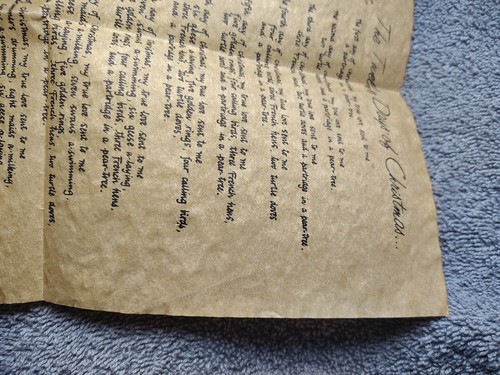 The Twelve Days of Christmas...
The first day of my true love sent to me
a partridge in a pear-tree.
The second day my true love sent to me
and a partridge in a pear-tree.
The third day true love sent to me
two turtle doves and a partridge in a pear-tree.
The fourth day of my true love sent to me
Four calling birds, three French hens, two turtle doves
and a partridge in a pear-tree.
fifth day of christmas, my true love sent to me
five golden rings, four calling birds, three French hens,
two turtle doves and a partridge in a pear-tree.
day of christmas, my true love sent to me
geese a-laying, five golden rings, four calling birds,
French hens, two turtle doves,
and a partridge in a pear-tree.
day of christmas my true love sent to me
swans a-swimming, six geese a-laying
golden rings, four calling birds, three French hens,
turtle doves, and a partridge in a pear-tree.
day of christmas, my true love sent to me
maids a-milking, seven swans a-swimming,
a-laying, five golden rings
birds, three French hens, two turtle doves,
partridge in a pear-tree.
christmas, my true love sent to me
eight maids a-milking,
a-swimming, six geese a-laying